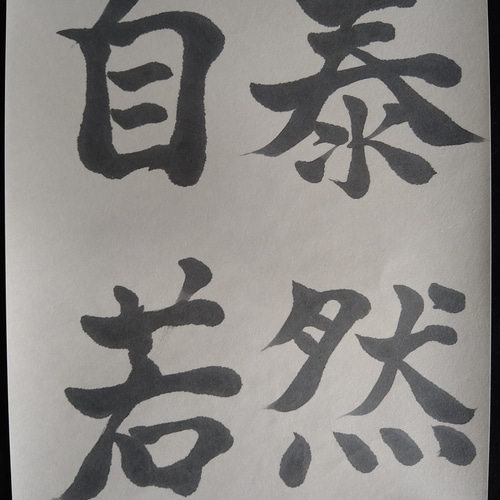 泰然
自若